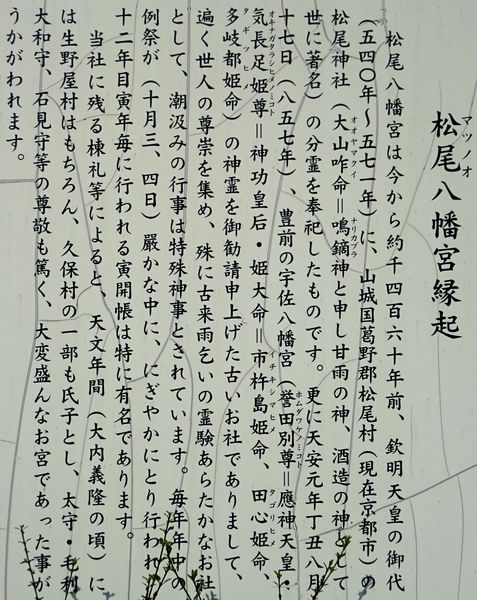 松尾八幡宮縁起
マツノオ
松尾八幡宮は今から約千四百六十年前、欽明天皇の御代
(五四〇年～五七一年)に、山城国葛野郡松尾村(現在京都市)の
松尾神社(大山咋命＝鳴鏑神と申し甘雨の神、酒造の神として
オオヤマクイ
ナリカブラ
世に著名)の分霊を奉祀したものです。更に天安元年丁丑八月
十七日(八五七年)、豊前の宇佐八幡宮(誉田別尊＝應神天皇・
ホムダワケノミコト
気長足姫尊＝神功皇后・姫大命＝市杵島姫命、田心姫命、
オキナガタラシヒメノミコト
イチキシマヒメ
タゴリヒメ
多岐都姫命)の神霊を御勧請申上げた古いお社でありまして、
タギツヒメ
遍く世人の尊崇を集め、殊に古来雨乞いの霊験あらたかなお社
として、潮汲みの行事は特殊神事とされています。毎年年中の
例祭が(十月三、四日)厳かな中に、にぎやかにとり行われ
十二年目寅年毎に行われる寅開帳は特に有名であります。
当社に残る棟札等によると、天文年間(大内義隆の頃)に
は生野屋村はもちろん、久保村の一部も氏子とし、太守・毛利
大和守、石見守等の尊敬も篤く、大変盛んなお宮であった事が
うかがわれます。